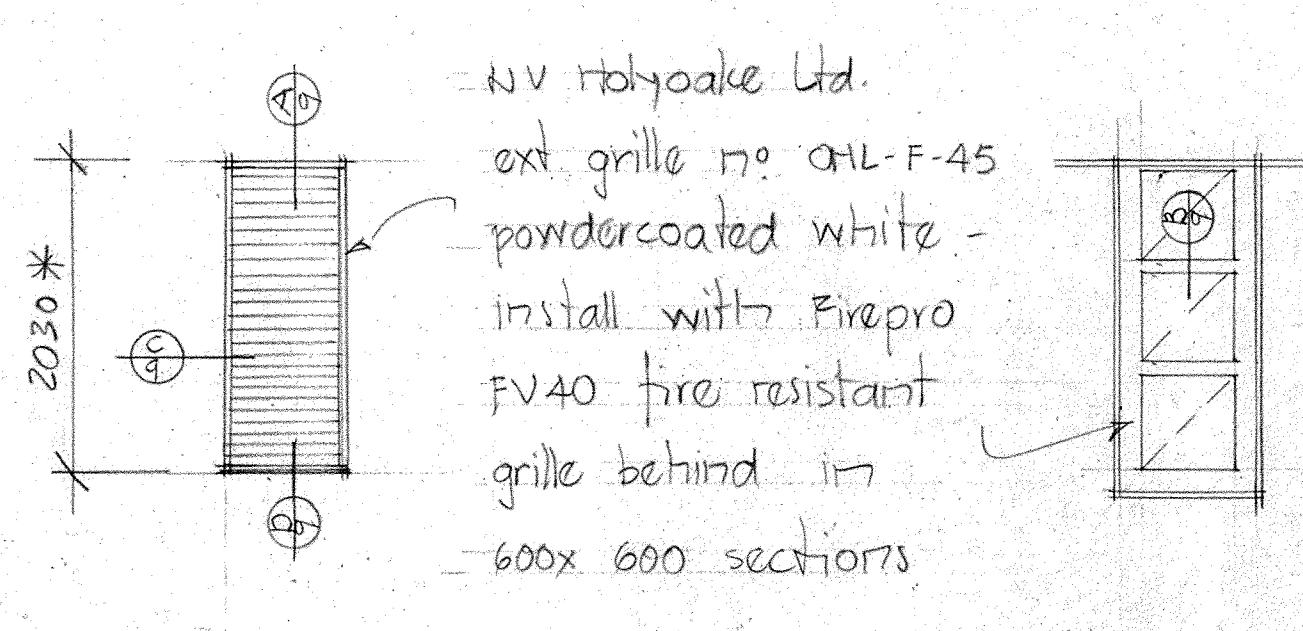 A
9
NV Holyoake Ltd.
ext grille nº OHL-F-45
powdercoated white -
install with Firepro
FV40 fire resistant
grille behind in
600x 600 sections
2030 *
C
9
D
9
B
9